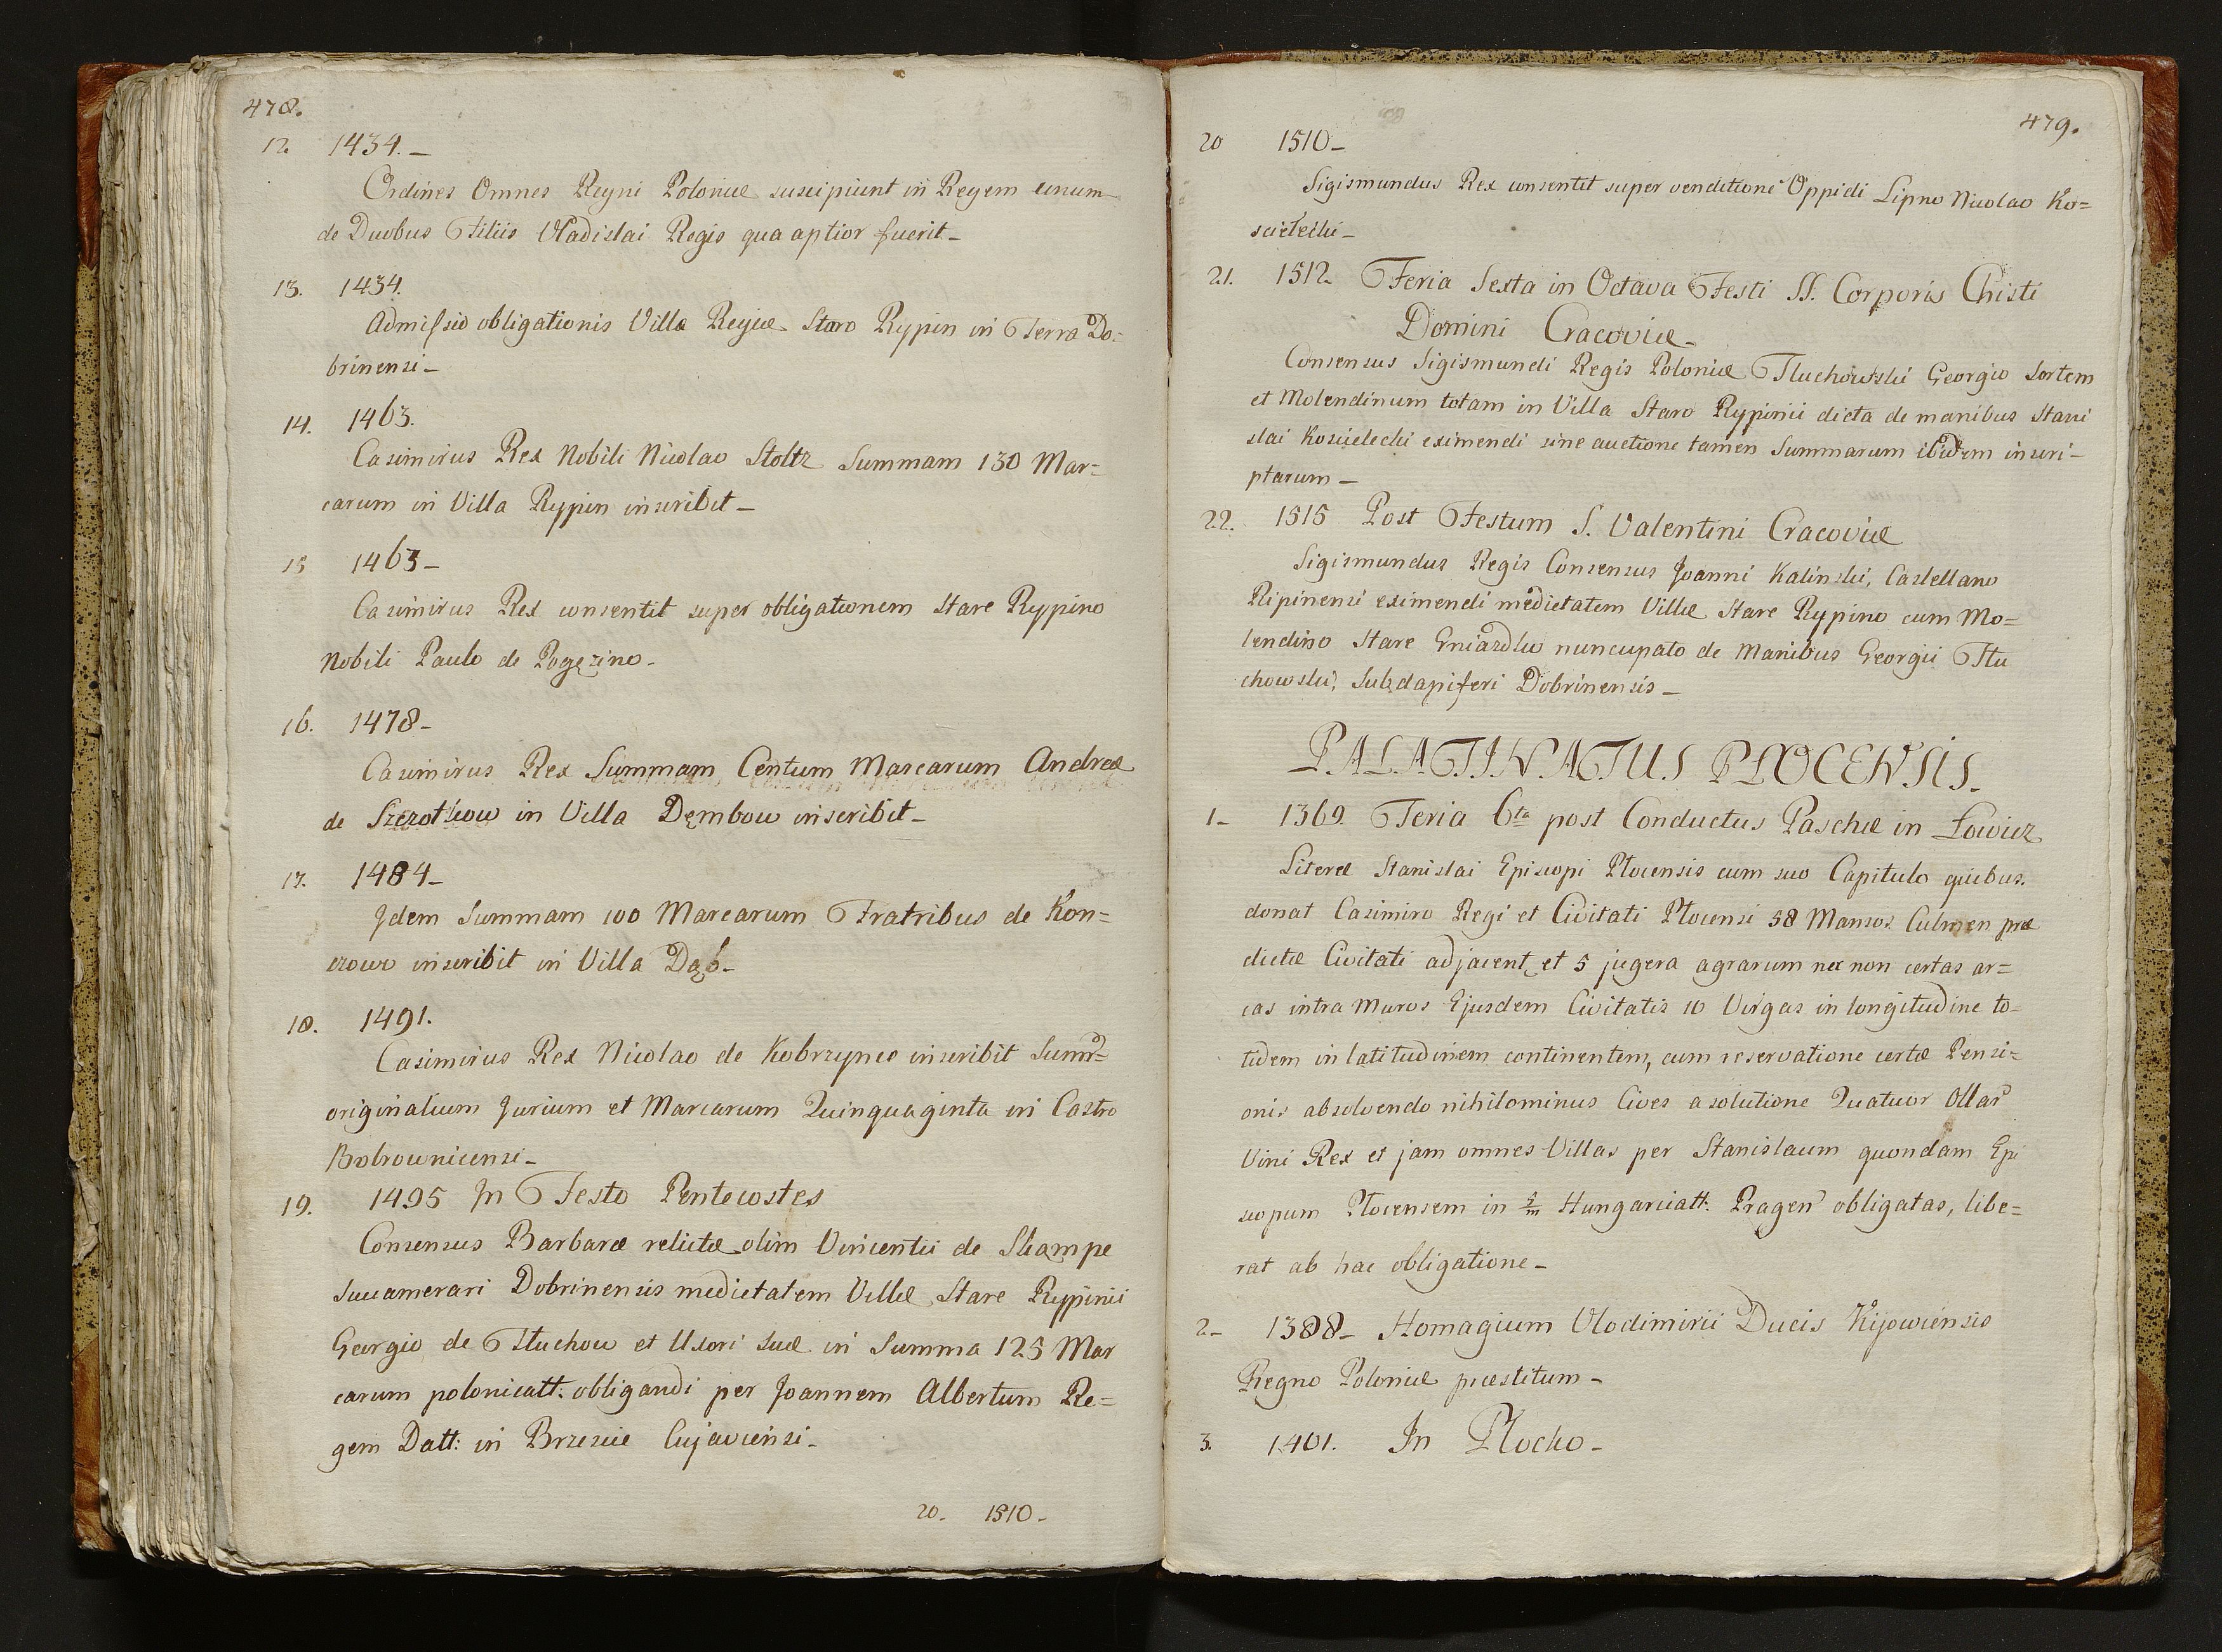 478.
12. 1434.—
Ordines Omnes Regni Poloniæ suscipiunt in Regem unum
de Duobus Filiis Vladislai Regis qua aptior fuerit—
13. 1434.
Admissio obligationis Villæ Regiæ Staro Rypin in Terra Do=
brinensi—
14. 1463.
Casimirus Rex Nobili Nicolao Stoltz Summam 130 Mar=
carum in Villa Rypin inscribit—
15 1463—
Casimirus Rex consentit super obligationem Stare Ryppino
Nobili Paulo de Pogęzino.
16. 1478—
Casimirus Rex Summam Centum Marcarum Andreæ
de Szczothow in Villa Dębow inscribit—
17. 1484—
Jdem Summam 100 Marcarum Fratribus de Kon=
czowo inscribit in Villa Dąb—
18. 1491.
Casimirus Rex Nicolao de Kobrzyneo inscribit Summ=
originalium Jurium et Marcarum Quinquaginta in Castro
Bobrownicensi—
19. 1495 Jn Festo Pentecostes
Consensus Barbaræ relictæ olim Vincentii de Skąmpe
Succamerari Dobrinensis medietatem Villæ Stare Ryppinii
Georgio de Tłuchow et Uxori suæ in Summa 125 Mar
carum polonicatt: obligandi per Joannem Albertum Re=
gem Datt: in Brzescie Cujaviensi—
20. 1510—
479.
20 1510—
Sigismundus Rex consentit super venditione Oppidi Lipno Nicolao Ko=
scielecki—
21. 1512 Feria Sexta in Octava Festi SS. Corporis Chisti
Domini Cracoviæ—
Consensus Sigismundi Regis Poloniæ Tluchowski Georgio Sortem
et Molendinum totam in Villa Staro Rypinii dicta de manibus Stani
slai Koscielecki eximendi sine auctione tamen Summarum ibidem inscri—
ptarum—
22. 1515 Post Festum S. Valentini Cracoviæ
Sigismundus Regis Consensus Joanni Kalinski, Castellano
Ripinensi eximendi medietatem Villæ Stare Rypino cum Mo=
lendino Stare Gniazdko nuncupato de Manibus Georgii Tlu
chowski, Subdapiferi Dobrinensis—
PALATINATUS PLOCENSIS.
1— 1369. Feria 6ta post Conductus Paschæ in Łowicz
Literæ Stanislai Episcopi Plocensis cum suo Capitulo quibus
donat Casimiro Regi et Civitati Plocensi 58 Mansos Culmen præ
dictæ Civitati adjacent, et 5 jugera agrarum nec non certas ar=
cas intra Muros Ejusdem Civitatis 10 Virgas in longitudine to=
tidem in latitudinem continentem, cum reservatione certæ Pensi=
onis absolvendo nihilominus Cives a solutione Quatuor Ollar
Vini Rex et jam omnes Villas per Stanislaum quondam Epi
scopum Plocensem in Hungariatt: Pragen obligatas, libe=
rat ab hac obligatione—
2— 1388— Homagium Vlodimirii Ducis Kijowiensis
Regno Poloniæ præstitum—
3. 1401. In Plocko—